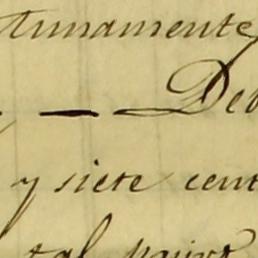 tunamente
— Deb
y siete cent
tal